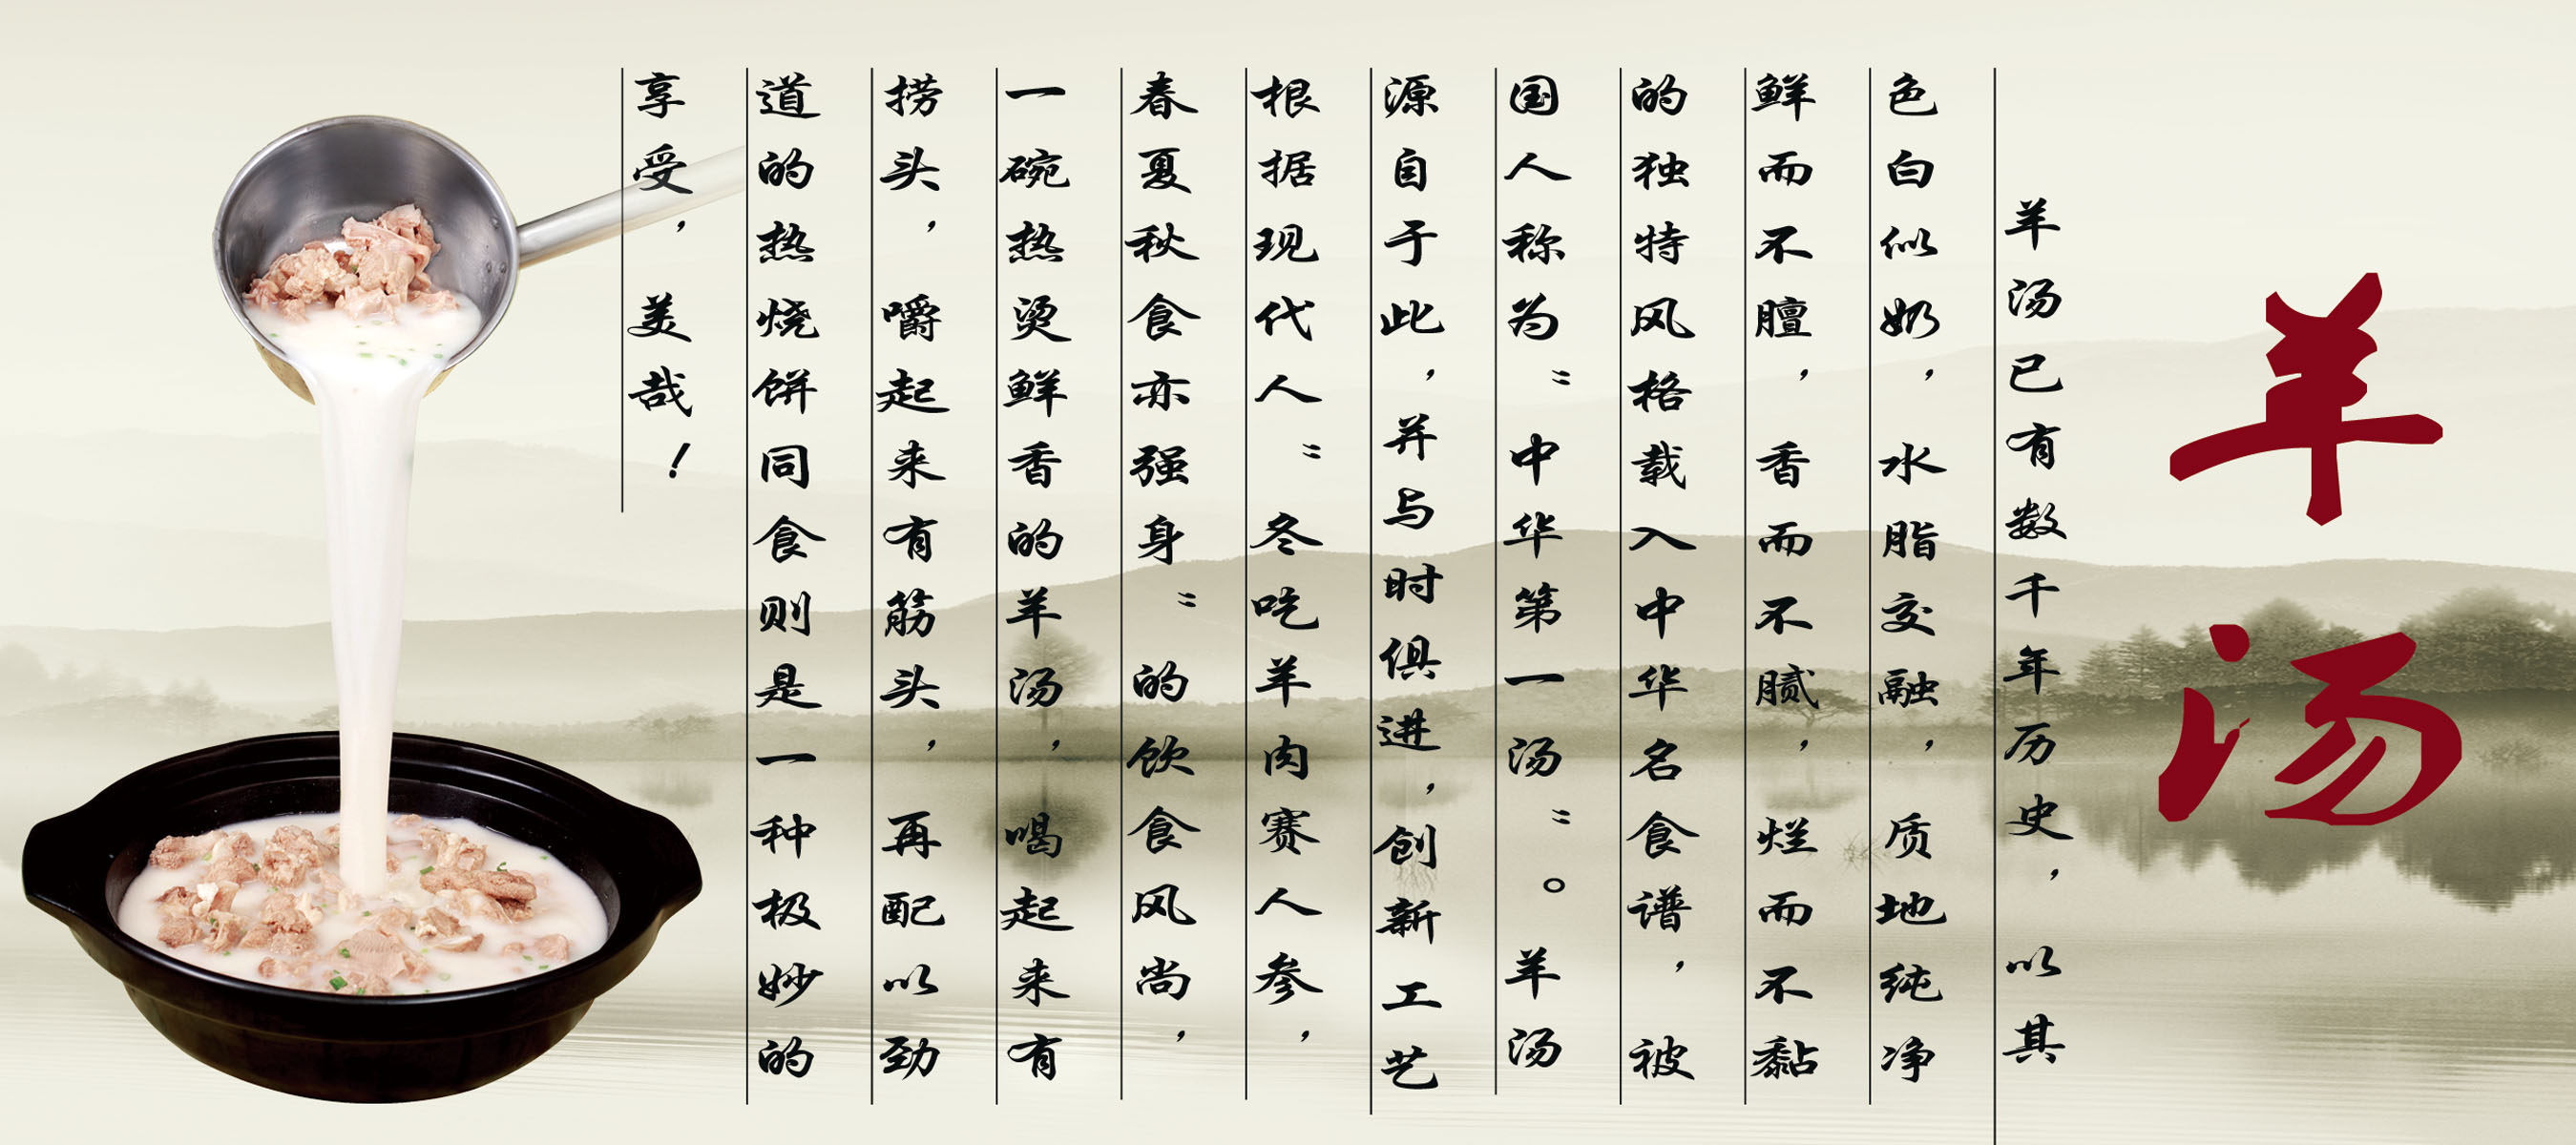 羊汤
羊汤已有数千年历史，以其
色白似奶，水脂交融，质地纯净
鲜而不膻，香而不腻，烂而不黏
的独特风格载入中华名食谱，被
国人称为"中华第一汤"。羊汤
源自于此，并与时俱进，创新工艺
根据现代人"冬吃羊肉赛人参，
春夏秋食亦强身"的饮食风尚，
一碗热烫鲜香的羊汤，喝起来有
捞头，嚼起来有筋头，再配以劲
道的热烧饼同食则是一种极妙的
享受，美哉！